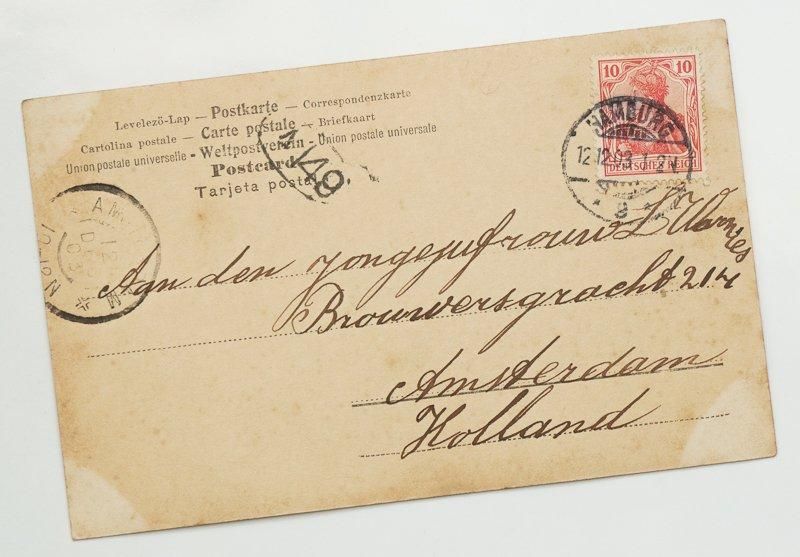 Levelező-Lap — Postkarte — Correspondenzkarte
Cartolina postale — Carte postale — Briefkaart
Union postale universelle - Weltpostverein - Union postale universale
Postcard
Tarjeta postal
N48
10 10
DEUTSCHES REICH
HAMBURG
12.12.03
Aan den jongejufrouw L
Brouwersgracht 214
Amsterdam
Holland